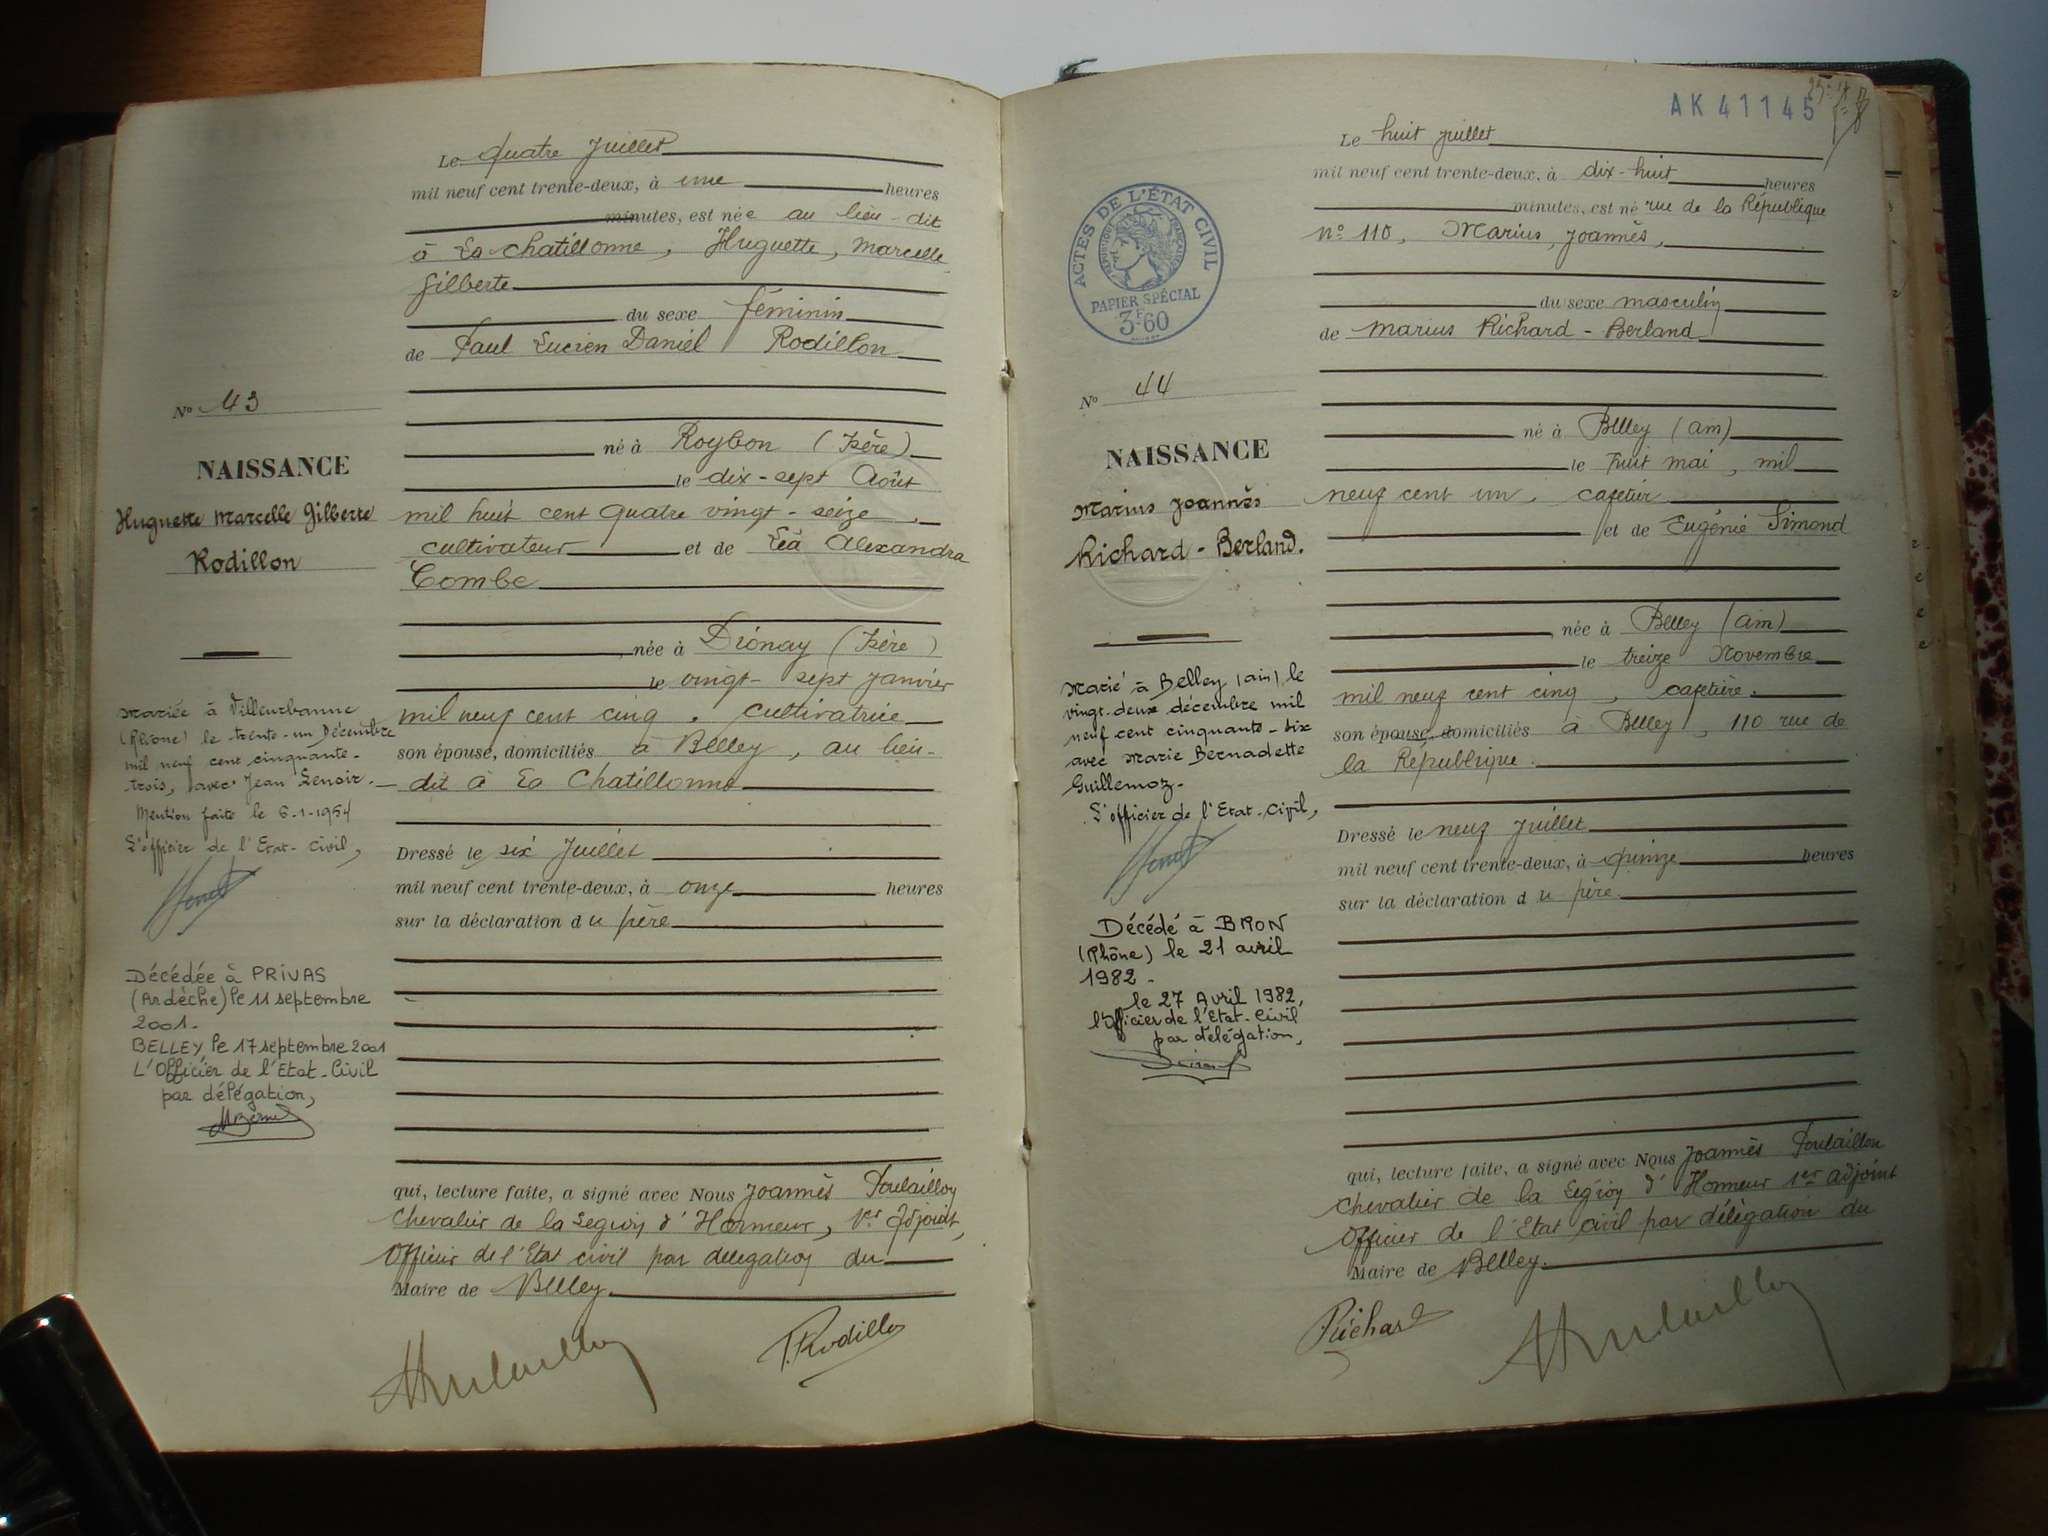 Le quatre Juillet
mil neuf cent trente-deux, à une heures
minutes, est née au lieu-dit
à La Chatillonne, Huguette, Marcelle
Gilberte
du sexe féminin
de Paul Lucien Daniel Rodillon
No 43
né à Roybon (Isère)
NAISSANCE
le dix-sept Août
Huguette Marcelle Gilberte
mil huit cent quatre vingt-seize.
cultivateur et de Léa Alexandra
Rodillon
Combe
née à Dionay (Isère)
le vingt-sept janvier
mil neuf cent cinq. cultivatrice
son épouse, domiciliés à Belley, au lieu-
dit à La Chatillonne
Mariée à Villeurbanne
(Rhône) le trente-un Décembre
mil neuf cent cinquante-
trois, avec Jean Lenoir.
Mention faite le 6-1-1954
L'officier de l'Etat-Civil,
Dressé le six Juillet
mil neuf cent trente-deux, à onze heures
sur la déclaration du père
Décédée à PRIVAS
(Ardèche) le 11 septembre
2001.
BELLEY, le 17 septembre 2001
L'Officier de l'Etat-Civil
par délégation,
qui, lecture faite, a signé avec Nous Joannès Poulaillon
Chevalier de la Légion d'Honneur, 1er Adjoint,
Officier de l'Etat civil par délégation du
Maire de Belley.
P. Rodillon
AK 41145
Le huit juillet
mil neuf cent trente-deux, à dix-huit heures
minutes, est né rue de la République
no 110, Marius, Joannès,
ACTES DE L'ÉTAT CIVIL
RÉPUBLIQUE FRANÇAISE
PAPIER SPÉCIAL
3F60
du sexe masculin
de Marius Richard-Berland
No 44
né à Belley (Ain)
NAISSANCE
le huit mai, mil
Marius Joannès
neuf cent un, cafetier
Richard-Berland.
et de Eugénie Simond
née à Belley (Ain)
le treize Novembre
mil neuf cent cinq, cafetière.
son épouse, domiciliés à Belley, 110 rue de
la République.
Marié à Belley (Ain) le
vingt-deux décembre mil
neuf cent cinquante-six
avec Marie Bernadette
Guillemoz-
L'officier de l'Etat-Civil,
Dressé le neuf Juillet
mil neuf cent trente-deux, à quinze heures
sur la déclaration du père
Décédé à BRON
(Rhône) le 21 avril
1982-
le 27 Avril 1982,
l'Officier de l'Etat-Civil
par délégation,
qui, lecture faite, a signé avec Nous Joannès Poulaillon
Chevalier de la Légion d'Honneur 1er adjoint
Officier de l'Etat civil par délégation du
Maire de Belley.
Richard